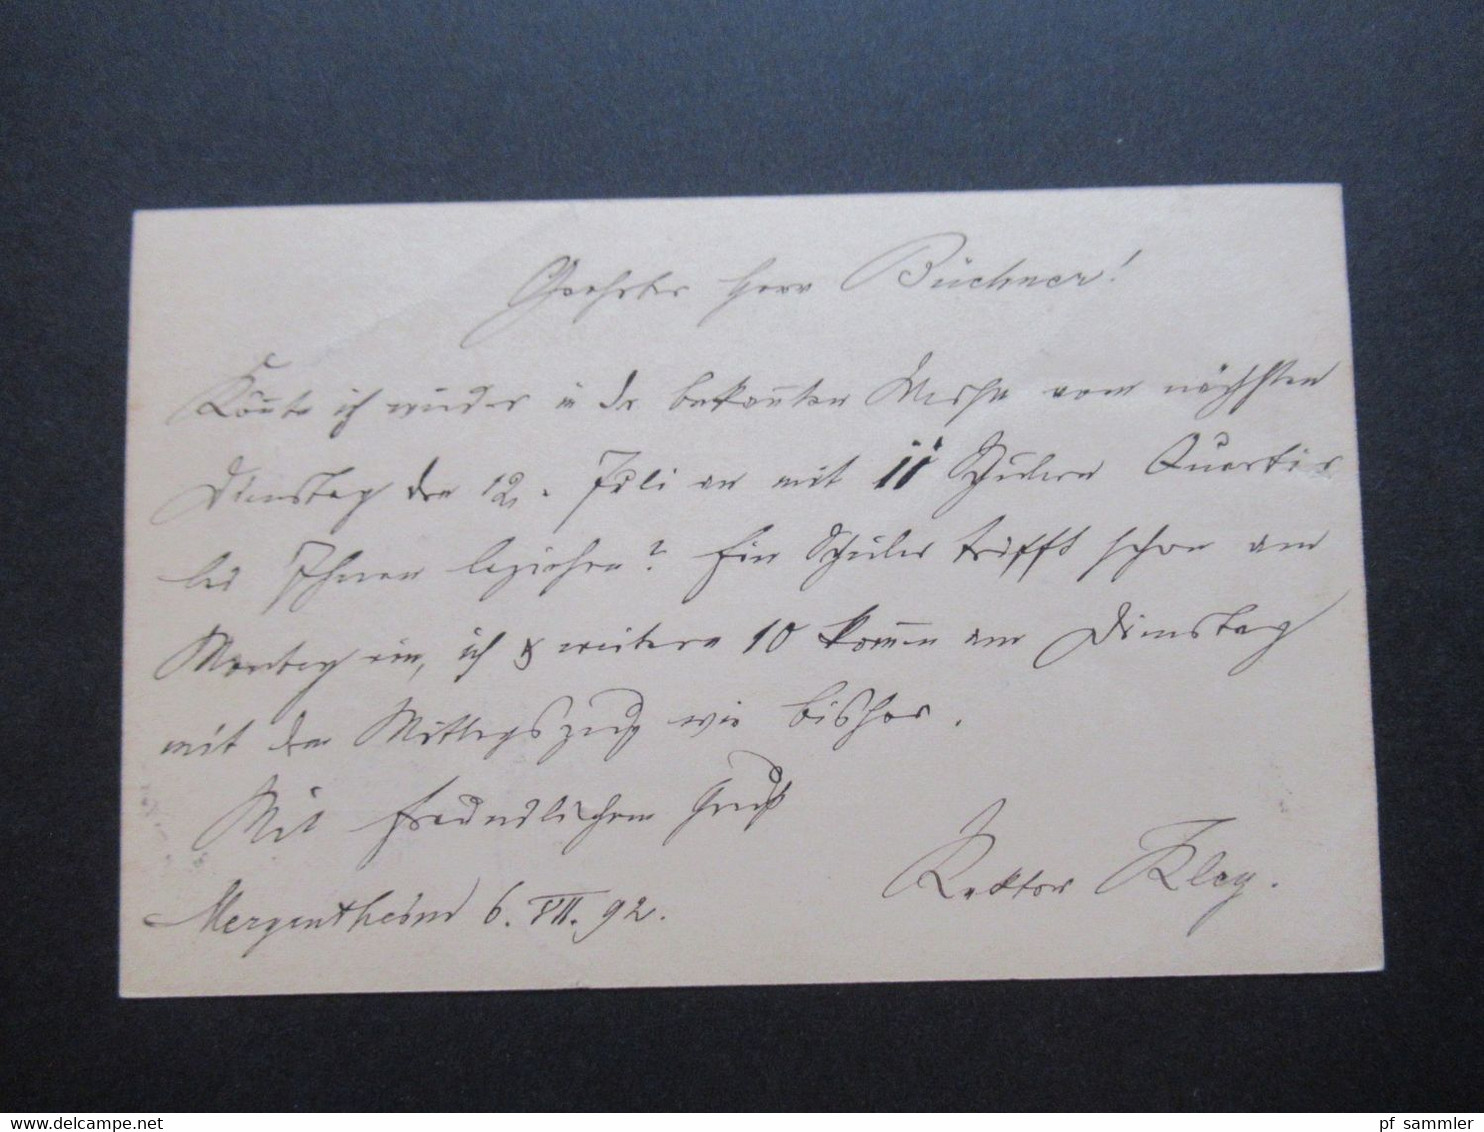 Geehrter Herr Büchner!
Könnte ich wieder in der bekannten Weise vom nächsten
Dienstag den 12. Juli an mit 11 Schülern Quartier
bei Ihnen beziehen? Ein Schüler trifft schon am
Montag ein, ich & weitere 10 kommen am Dienstag
mit dem Mittagszug wie bisher.
Mit freundlichem Gruß
Rektor Kley.
Mergentheim 6. VII. 92.
www.delcampe.net
pf_sammler